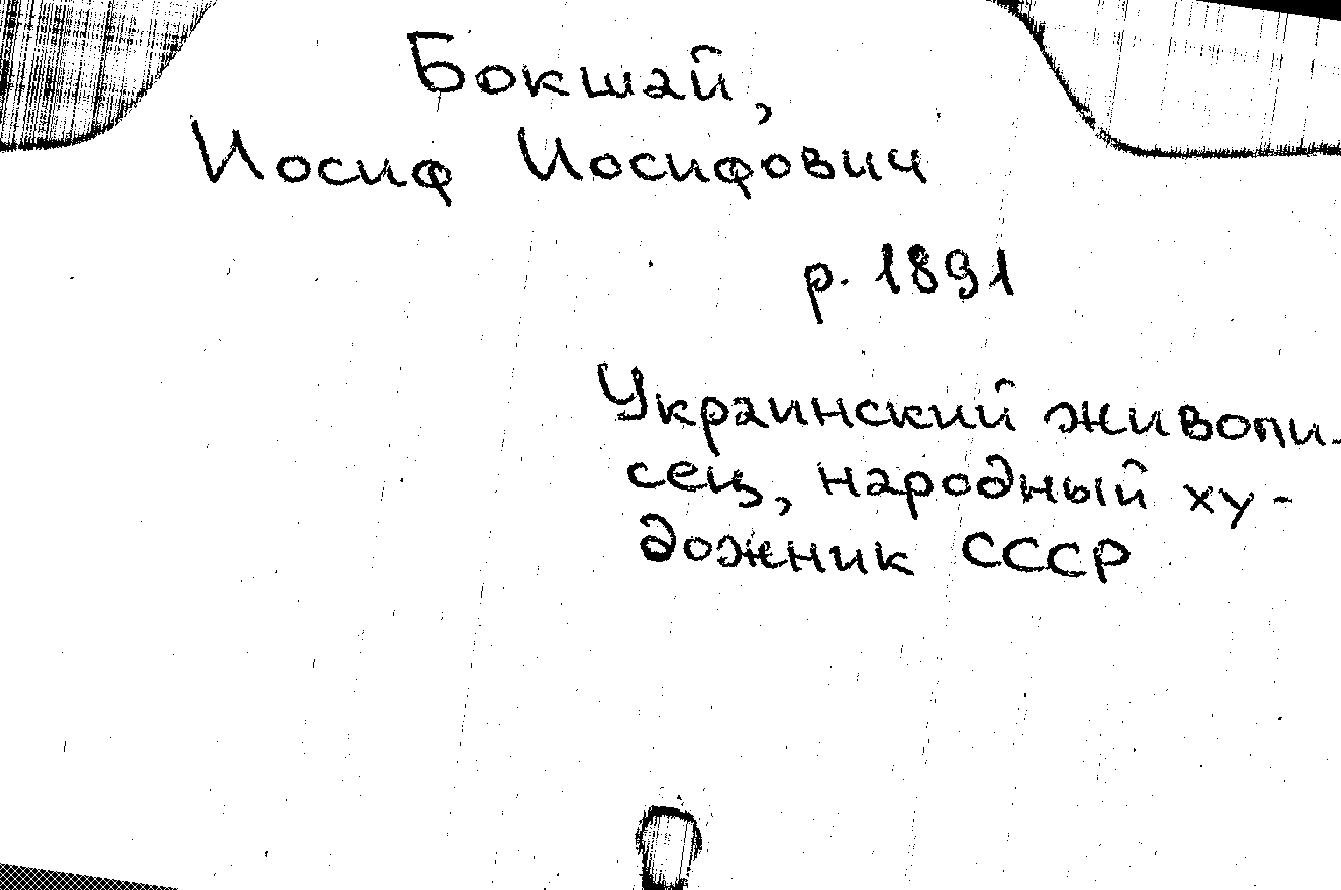 Бокшай,
Иосиф Иосифович
р. 1891
Украинский живопи-
сец, народный ху-
дожник СССР